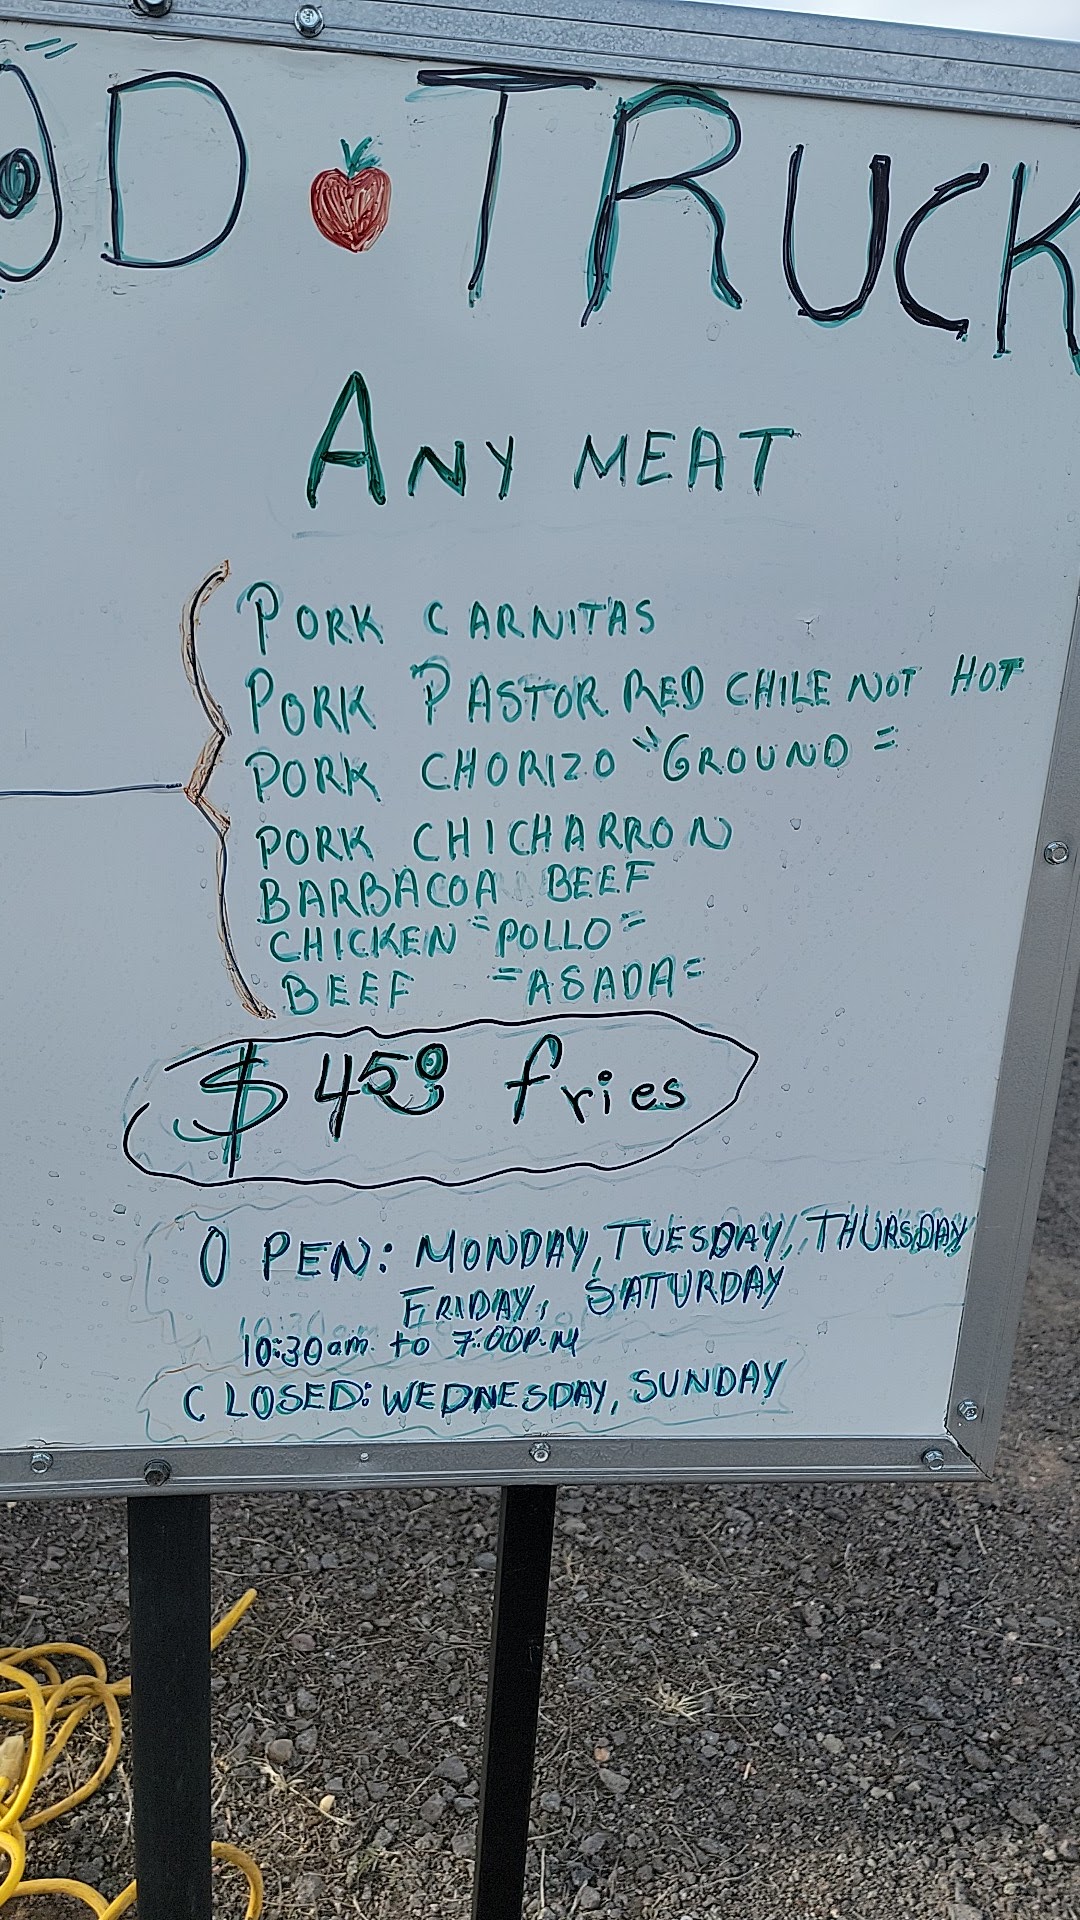 OOD TRUCK
ANY MEAT
PORK CARNITAS
PORK PASTOR RED CHILE NOT HOT
PORK CHORIZO "GROUND"
PORK CHICHARRON
BARBACOA BEEF
CHICKEN "POLLO"
BEEF "ASADA"
$ 450 fries
OPEN: MONDAY, TUESDAY, THURSDAY
FRIDAY, SATURDAY
10:30am to 7:00P.M
CLOSED: WEDNESDAY, SUNDAY